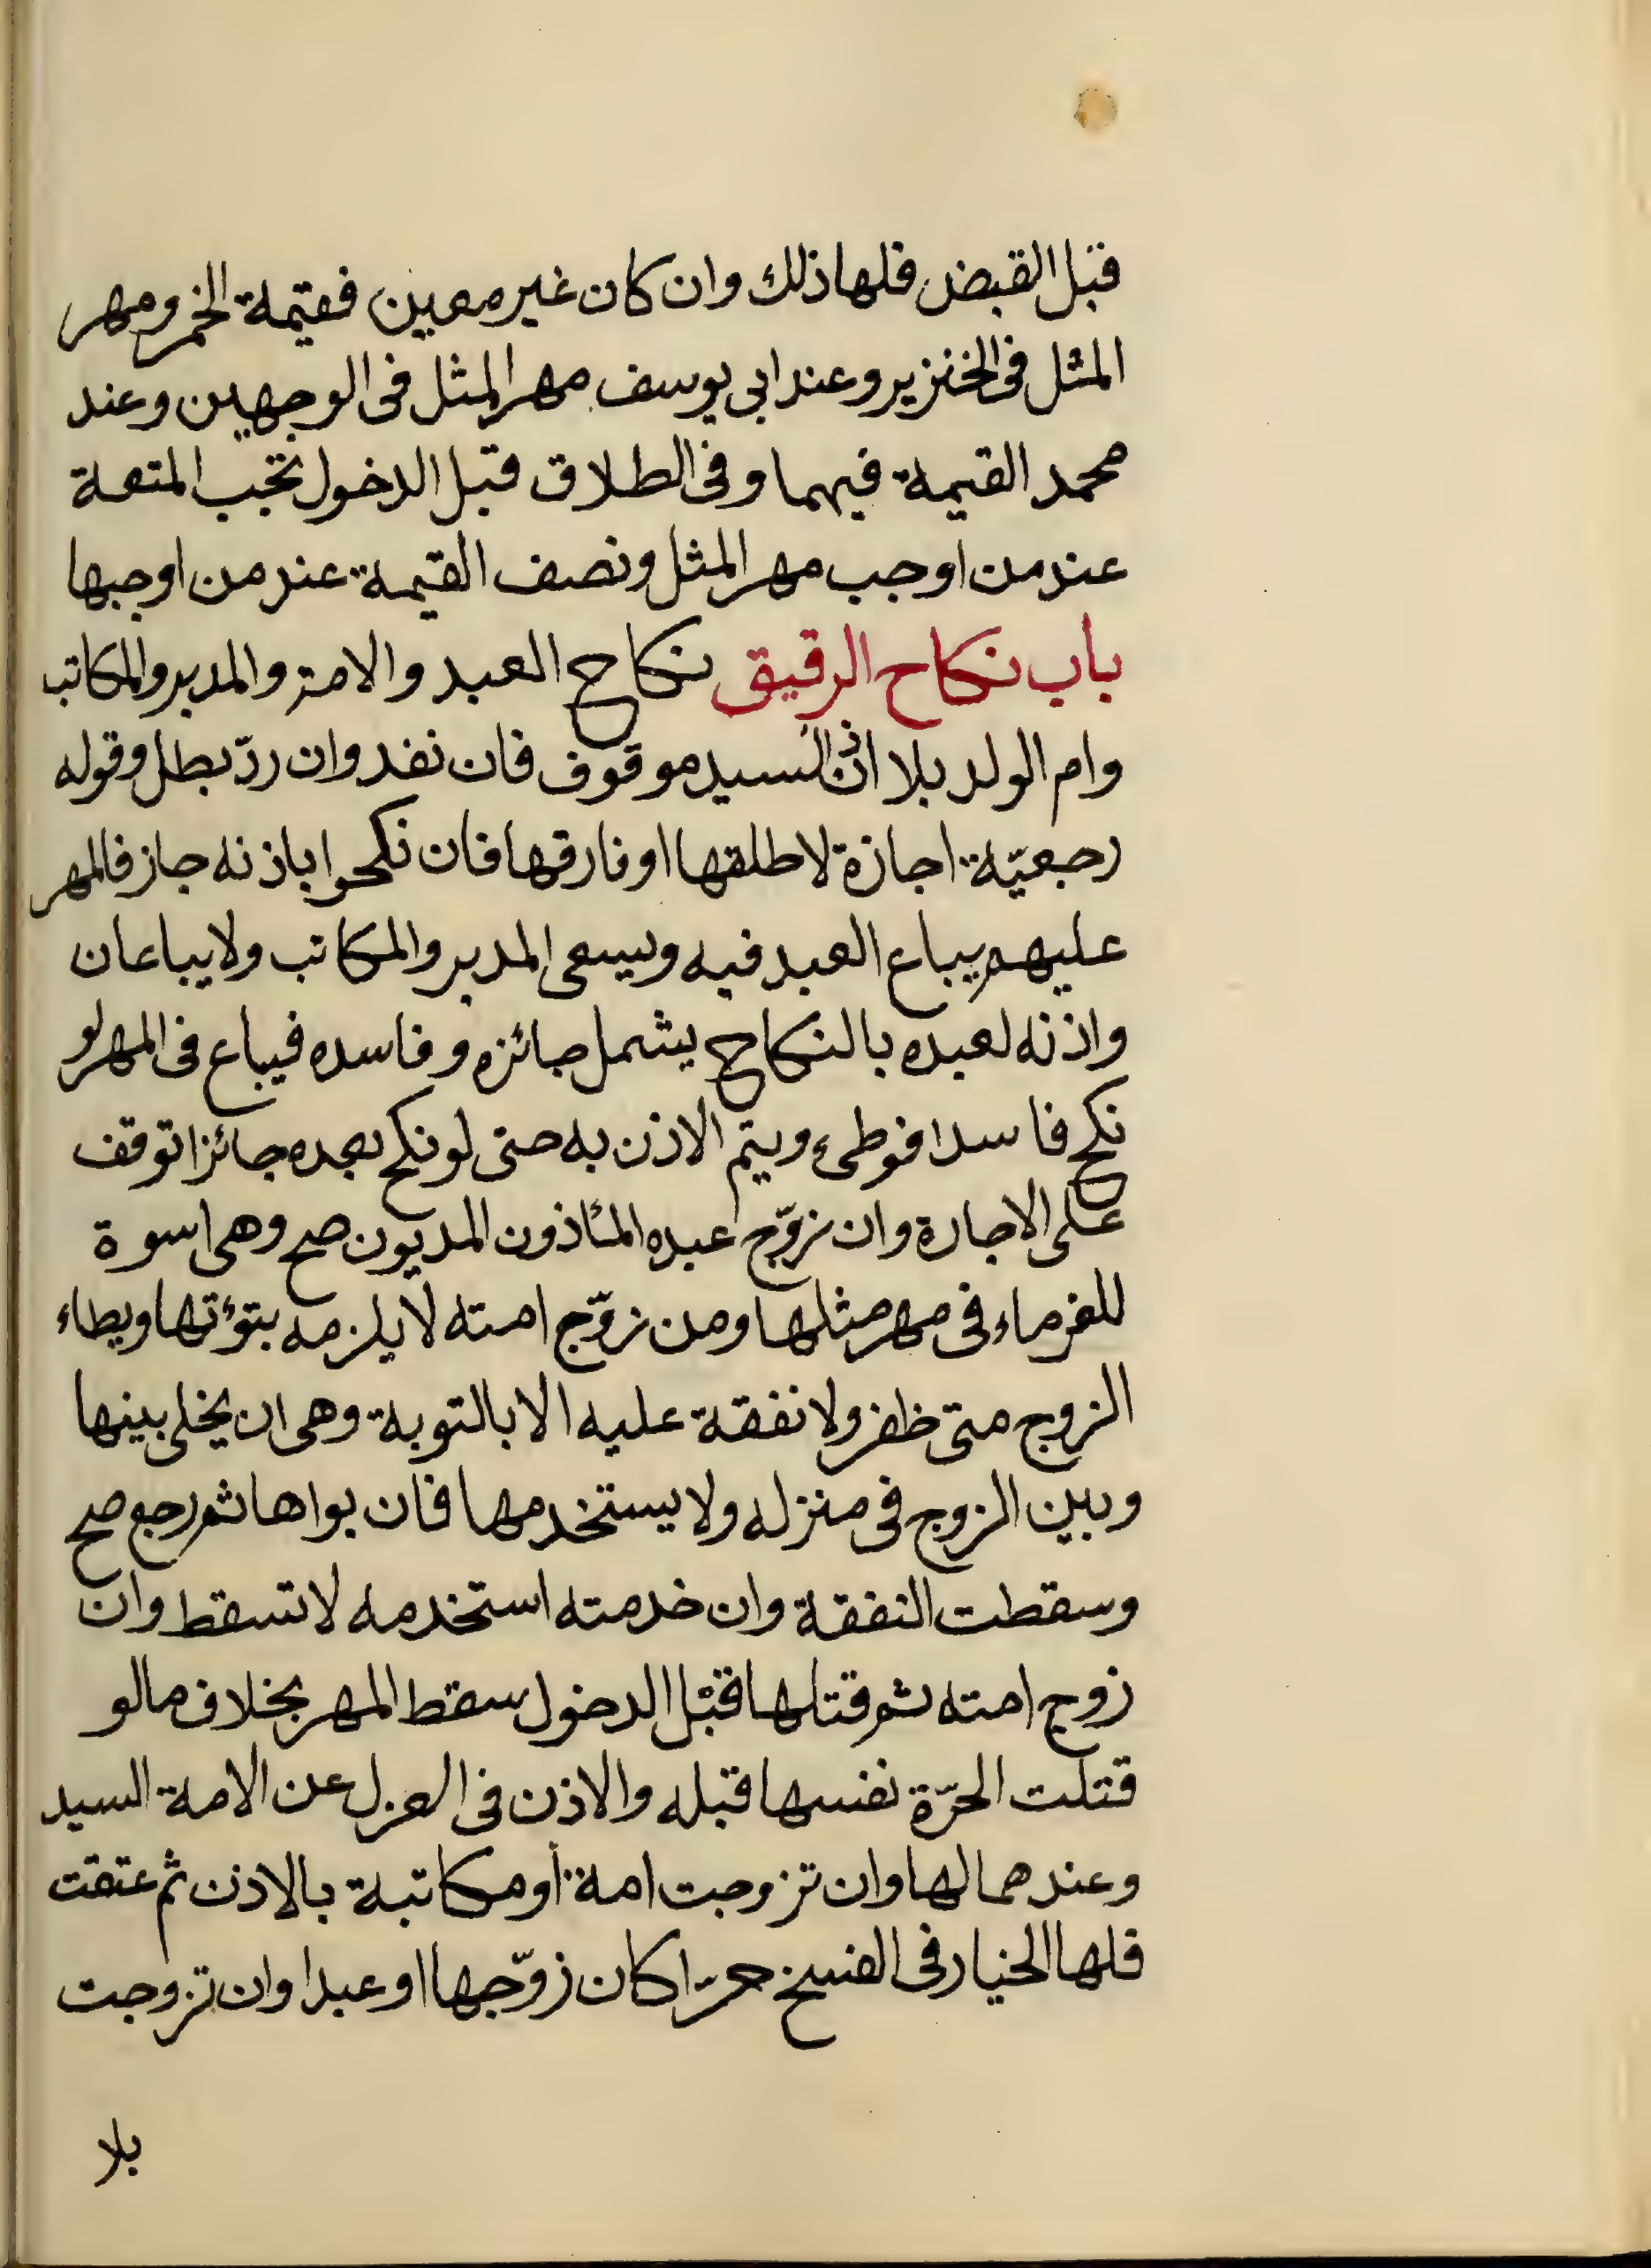 قبل القبض فلها ذلك وان كان غير معين فقيمة الخمر ومهر
المثل فى الخنزير وعند ابى يوسف مهر المثل فى الوجهين وعند
محمد القيمة فيهما وفى الطلاق قبل الدخول تجب المتعة
عند من اوجب مهر المثل ونصف القيمة عند من اوجبها
باب نكاح الرقيق نكاح العبد والامة والمدبر والمكاتب
وام الولد بلا اذن السيد موقوف فان نفد وان ردّ بطل وقوله
رجعيّة اجازة لا طلقها او فارقها فان نكحوا باذنه جاز فالمهر
عليهم يباع العبد فيه ويسعى المدبر والمكاتب ولا يباعان
واذنه لعبده بالنكاح يشمل جائزه وفاسده فيباع فى المهر لو
نكح فاسدا فوطىء ويتم الاذن به حتى لو نكح بعده جائزا توقف
على الاجارة وان زوّج عبده المأذون المديون صح وهى اسوة
للغرماء فى مهر مثلها ومن زوّج امته لا يلزمه بتوئتها ويطاء
الزوج متى ظفر ولا نفقة عليه الا بالتوبة وهى ان يخلى بينها
وبين الزوج فى منزله ولا يستخدمها فان بواها ثم رجع صح
وسقطت النفقة وان خدمته استخدمه لا تسقط وان
زوج امته ثم قتلها قبل الدخول سقط المهر بخلاف مالو
قتلت الحرّة نفسها قبله والاذن فى العزل عن الامة السيد
وعندهما لها وان تزوجت امة أو مكاتبة بالاذن ثم عتقت
فلها الخيار فى الفسخ حرّا كان زوّجها او عبدا وان تزوجت
بلا